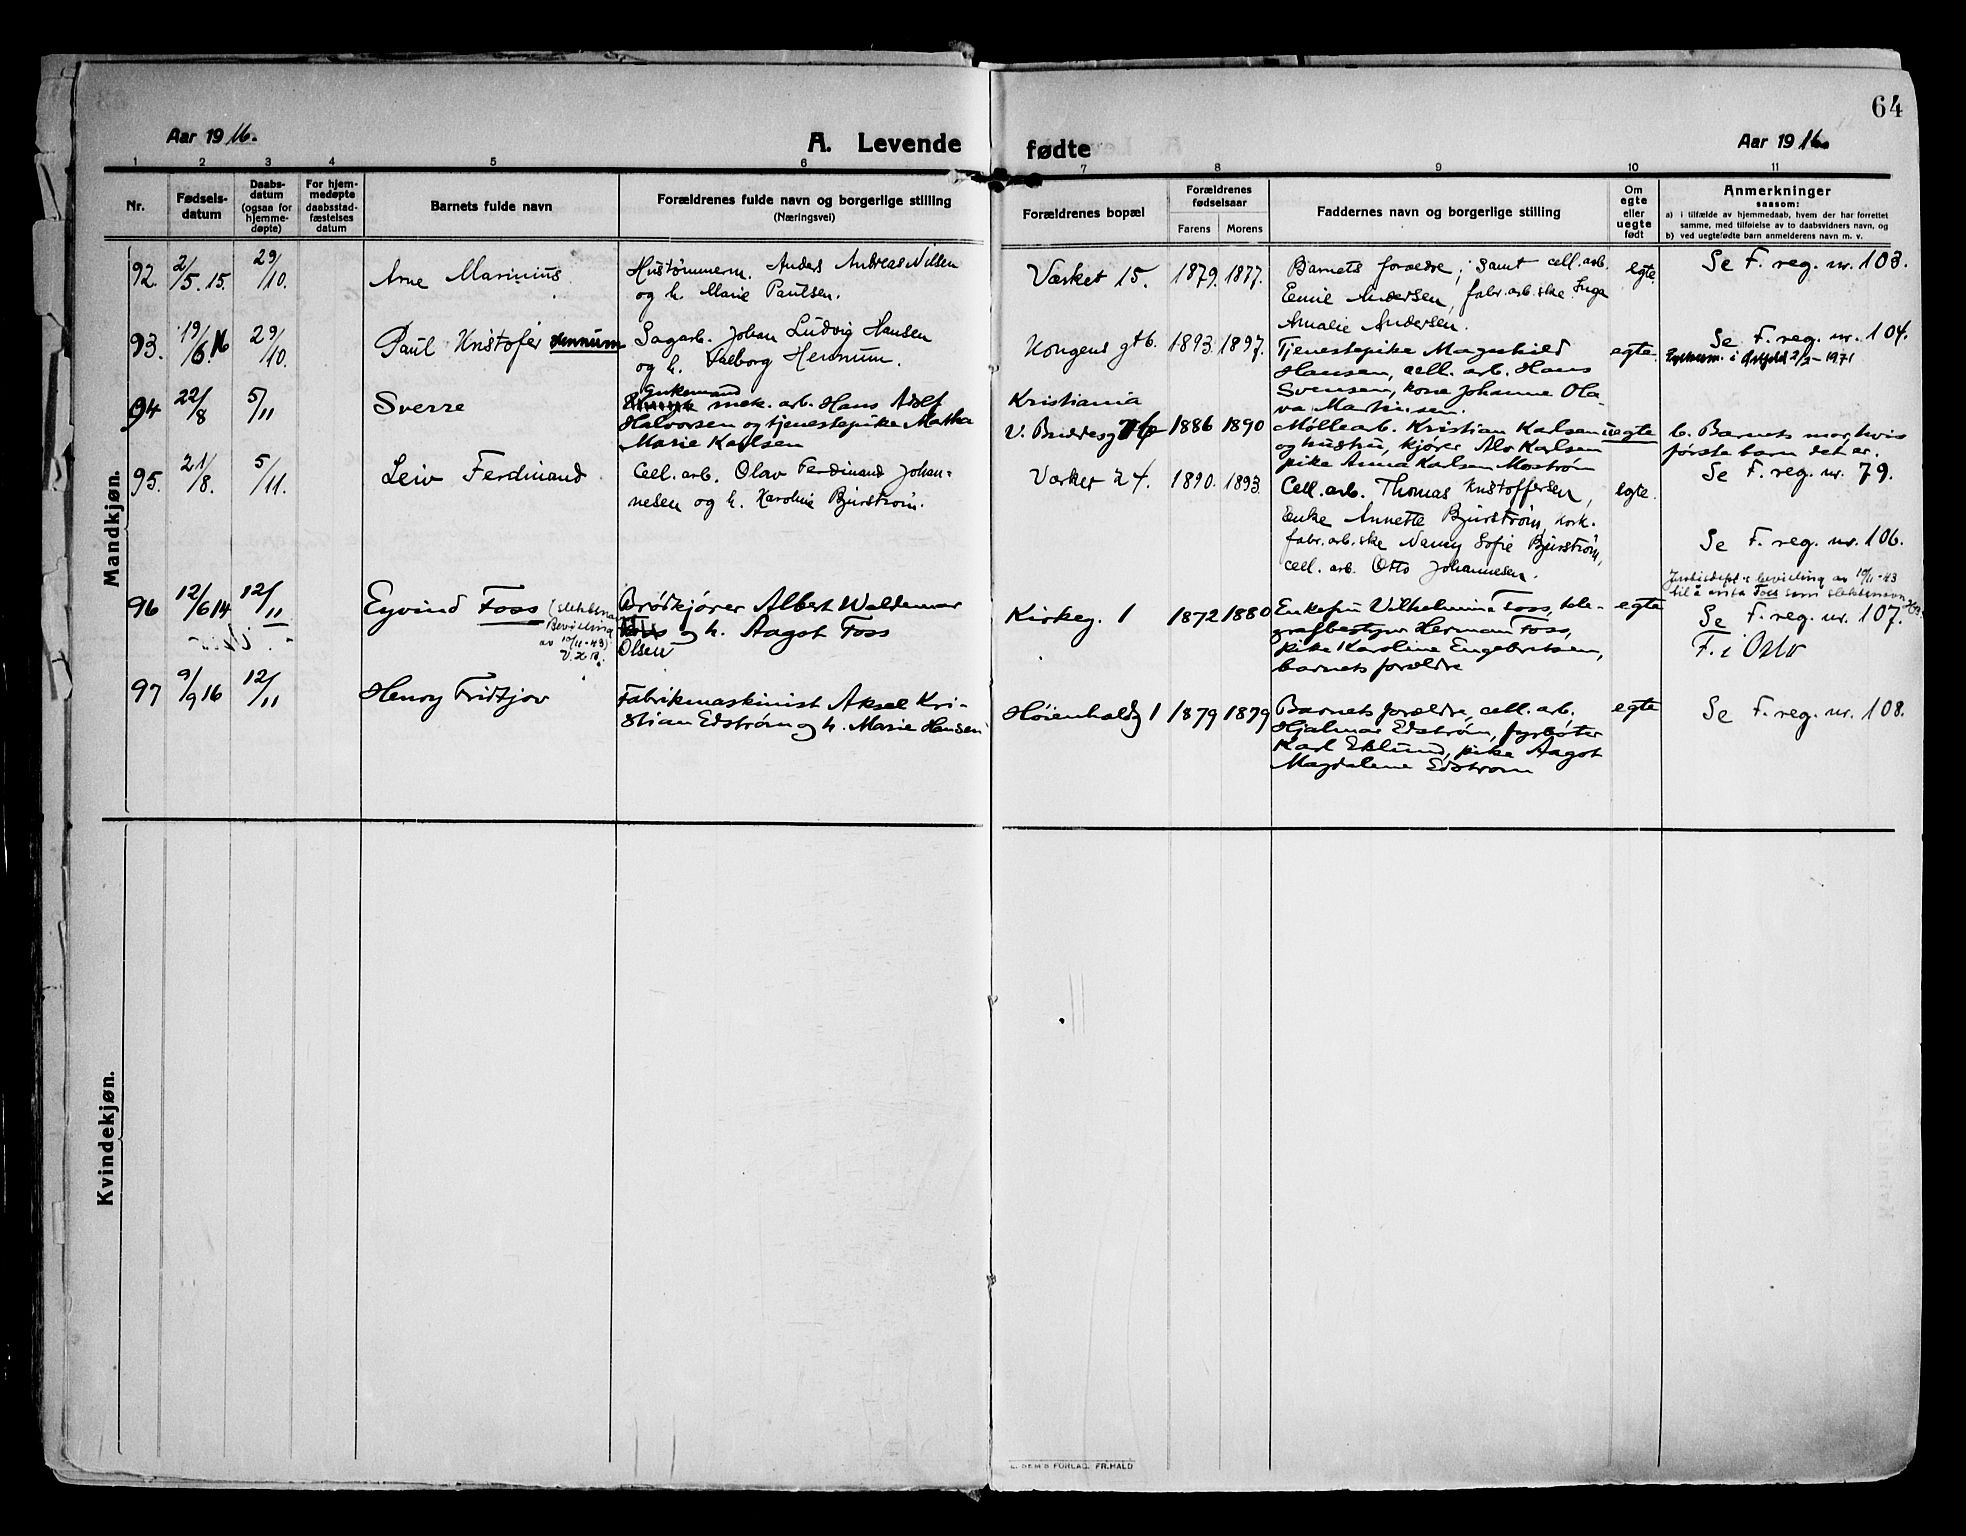 64
Aar 1916.
A. Levende fødte
Aar 1916.
1 2 3 4 5 6 7 8 9 10 11
Nr.
Fødsels-
datum
Daabs-
datum
(ogsaa for
hjemme-
døpte)
For hjem-
medøpte
daabsstad-
fæstelses
datum
Barnets fulde navn
Forældrenes fulde navn og borgerlige stilling
(Næringsvei)
Forældrenes bopæl
Forældrenes
fødselsaar
Farens Morens
Faddernes navn og borgerlige stilling
Om
egte
eller
uegte
født
Anmerkninger
saasom:
a) i tilfælde av hjemmedaab, hvem der har forrettet
samme, med tilføielse av to daabsvidners navn, og
b) ved uegtefødte barn anmelderens navn m. v.
Mandkjøn.
92. 2/5. 15. 29/10. Arne Marinius
Hustømmerm. Anders Andreas Nilsen
og h. Marie Paulsen.
Værket 15. 1879. 1877.
Barnets forældre; samt cell. arb.
Emil Andersen, fabr. arb. ske Inga
Amalie Andersen.
egte.
Se F. reg. nr. 103.
93. 19/6 16 29/10. Paul Kristofer Hennum
Sagarb. Johan Ludvig Hansen
og h. Valborg Hennum.
Kongens gt 6. 1893. 1897.
Tjenestepike Magnhild
Hansen, cell. arb. Hans
Svensen, kone Johanne Ola-
va Martinsen.
egte.
Se F. reg. nr. 104.
i Østfold 2/2-1971
94 22/8 5/11 Sverre
Enkemand
mek. arb. Hans Adolf
Halvorsen og tjenestepike Martha
Marie Karlsen
Kristiania
V. Buddesg 1886 1890
Møllearb. Kristian Karlsen
og hustru, kjører Alv Karlsen
pike Anna Karlsen Moström
uegte
b. Barnets mor hvis
første barn det er.
Se F. reg. nr. 79.
95. 21/8. 5/11. Leiv Ferdinand
Cell. arb. Olav Ferdinand Johan-
nesen og h. Karoline Bjurström.
Værket 24. 1890. 1893.
Cell. arb. Thomas Kristoffersen,
Enke Annette Bjurström, kork.
fabr. arb. ske Nancy Sofie Bjurström,
cell. arb. Otto Johannesen.
egte.
Se F. reg. nr. 106.
96 12/6 14 12/11 Eyvind Foss
(slektsnavn
Bevilling
av 10/11-43)
Brödkjörer Albert Waldemar
og h. Aagot Foss
Olsen
Kirkeg. 1 1872 1880
Enkefru Vilhelmine Foss, tele-
grafbestyrer Herman Foss,
pike Karoline Engebritsen,
barnets forældre
egte
Justisdept.s bevilling av 10/11-43
til å anta Foss som slektsnavn
Se F. reg. nr. 107.
F. i Oslo
97 9/9 16 12/11 Henry Fridtjov
Fabrikmaskinist Aksel Kri-
stian Edström og h. Marie Hansen
Höienhaldg 1 1879 1879
Barnets forældre, cell. arb.
Hjalmar Edström, fyrböter
Karl Eklund, pike Aagot
Magdalene Edström
egte
Se F. reg. nr. 108.
Kvindekjøn.
E. SEM'S FORLAG. FR.HALD